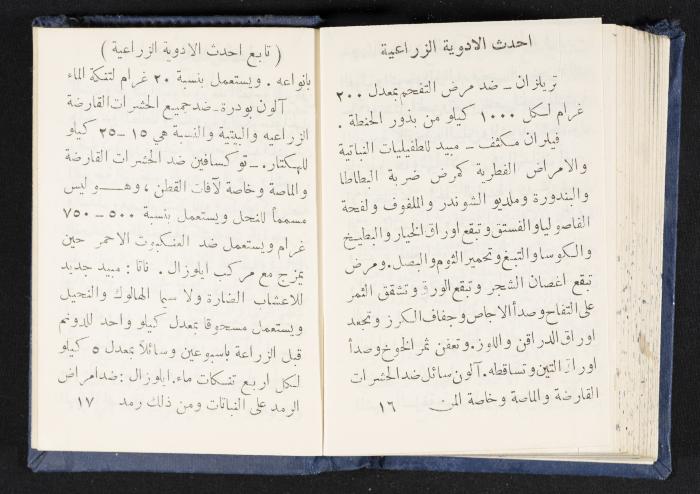 احدث الادوية الزراعية
تريلزان ــ ضد مرض التفحم بمعدل ٢٠٠
غرام لكل ١٠٠٠ كيلو من بذور الحنطة .
فيلران مكثف ــ مبيد للطفيليات النباتية
والامراض الفطرية كمرض ضربة البطاطا
والبندورة وملديو الشوندر والملفوف ولفحة
الفاصوليا والفستق وتبقع اوراق الخيار والبطيخ
والكوسا والتبغ وتحمير الثوم والبصل . ومرض
تبقع اغصان الشجر وتبقع الورق وتشقق الثمر
على التفاح وصدأ الاجاص وجفاف الكرز وتجعد
اوراق الدراقن واللوز . وتعفن ثمر الخوخ وصدأ
اوراق التين وتساقطه . آلون سائل ضد الحشرات
القارضة والماصة وخاصة المن
١٦
( تابع احدث الادوية الزراعية )
بانواعه . ويستعمل بنسبة ٢٠ غرام لتنكة الماء
آلون بودرة ــ ضد جميع الحشرات القارضة
الزراعيه والبيتية والنسبة هي ١٥ ــ ٢٥ كيلو
للهكتار . ــ توكسافين ضد الحشرات القارضة
والماصة وخاصة لآفات القطن ، وهــو ليس
مسمماً للنحل ويستعمل بنسبة ٥٠٠ ــ ٧٥٠
غرام ويستعمل ضد العنكبوت الاحمر حين
يمزج مع مركب ايلوزال . ناتا : مبيد جديد
للاعشاب الضارة ولا سيما الهالوك والنجيل
ويستعمل مسحوقا بمعدل كيلو واحد للدونم
قبل الزراعة باسبوعين وسائلاً بمعدل ٥ كيلو
لكل اربع تنكات ماء . ايلوزال : ضد امراض
الرمد على النباتات ومن ذلك رمد
١٧